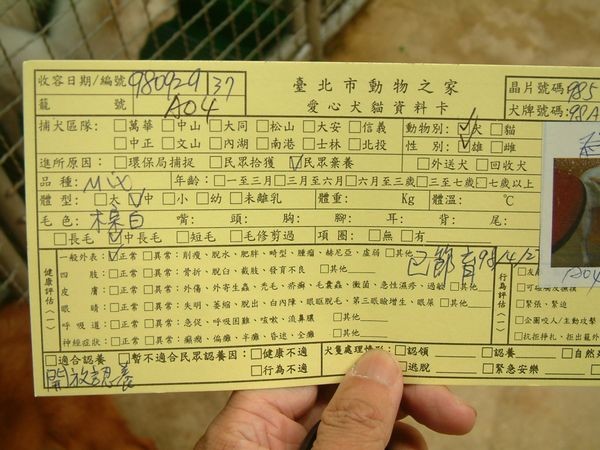 收容日期/編號 980929137 臺北市動物之家 晶片號碼 985
籠 號 A04 愛心犬貓資料卡 犬牌號碼 98A
捕犬區隊: □萬華 □中山 □大同 □松山 □大安 □信義 動物別: ☑犬 □貓
□中正 □文山 □內湖 □南港 □士林 □北投 性 別: ☑雄 □雌
進所原因: □環保局捕捉 □民眾拾獲 ☑民眾棄養 □外送犬 □回收犬
品種: Mix 年齡: □一至三月 □三月至六月 □六月至三歲 □三至七歲 □七歲以上
體型: □大 ☑中 □小 □幼 □未離乳 體重: Kg 體溫: ℃
毛色: 棕白 嘴: 頭: 胸: 腳: 耳: 背: 尾:
□長毛 ☑中長毛 □短毛 □毛修剪過 項圈: □無 □有
健康評估(一) 一般外表: ☑正常 □異常: 削瘦、脫水、肥胖、畸型、腫瘤、赫尼亞、虛弱 □其他 已節育98/4/2 行為評估(一)
四 肢: □正常 □異常: 骨折、脫臼、截肢、發育不良 □其他
皮 膚: □正常 □異常: 外傷、外寄生蟲、禿毛、疥癬、毛囊蟲、黴菌、急性濕疹、過敏 □其他
眼 睛: □正常 □異常: 失明、萎縮、脫出、白內障、眼眶脫毛、第三眼瞼增生、眼屎 □其他 □緊張、緊迫
呼吸道: □正常 □異常: 急促、呼吸困難、咳嗽、流鼻膿 □其他 □企圖咬人/主動攻擊
神經症狀: □正常 □異常: 癲癇、偏癱、半癱、昏迷、全癱 □其他 □抗拒掙扎、拒出籠外
□適合認養 □暫不適合民眾認養因: □健康不適 犬隻處理情形: □認領 □認養 □自然
開放認養 □行為不適 □逃脫 □緊急安樂
A04